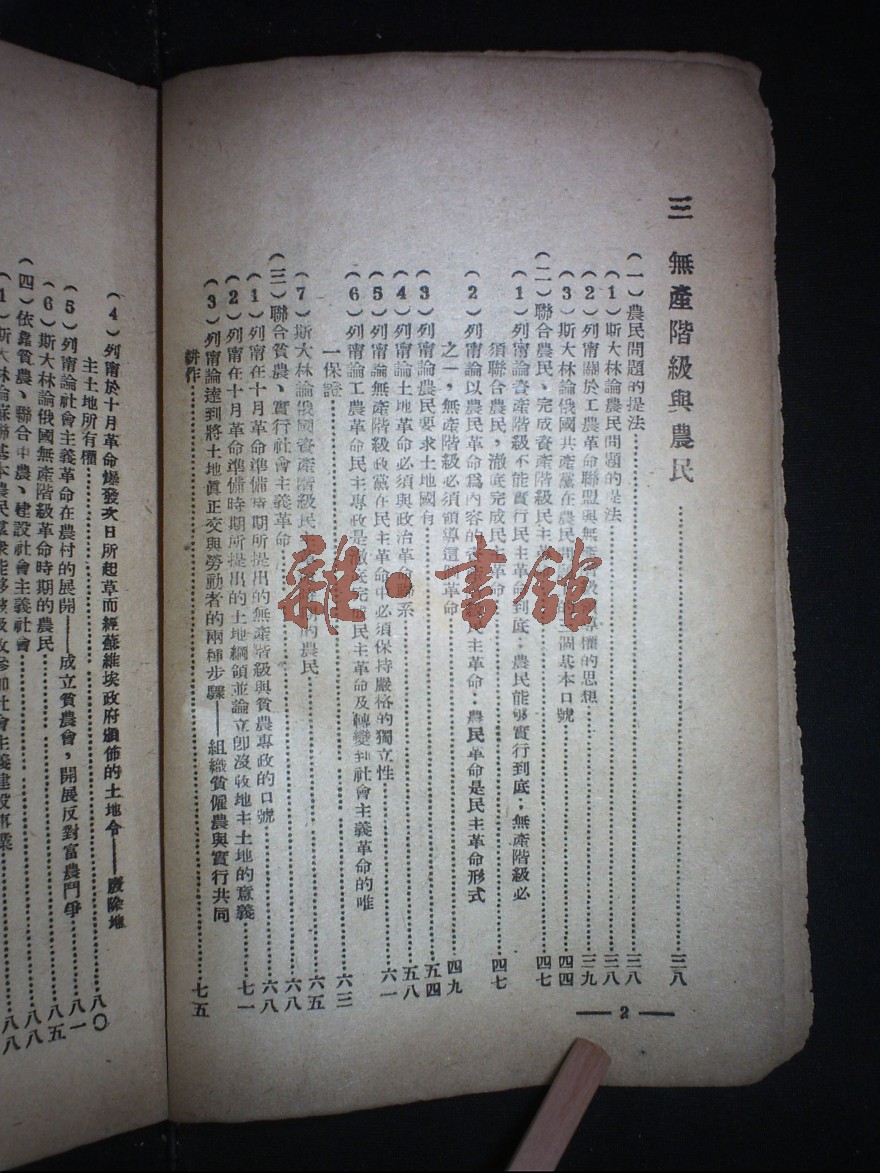 三　無產階級與農民……三八
（一）農民問題的提法……三八
（1）斯大林論農民問題的提法……三八
（2）列甯關於工農革命聯盟與無產階級專權的思想……三九
（3）斯大林論俄國共產黨在農民問題的三個基本口號……四四
（二）聯合農民、完成資產階級民主革命……四七
（1）列甯論資產階級不能實行民主革命到底；農民能够實行到底；無產階級必
須聯合農民，澈底完成民主革命……四七
（2）列甯論以農民革命爲內容的資產階級民主革命：農民革命是民主革命形式
之一，無產階級必須領導這種革命……四九
（3）列甯論農民要求土地國有……五四
（4）列甯論土地革命必須與政治革命聯系……五八
（5）列甯論無產階級政黨在民主革命中必須保持嚴格的獨立性……六一
（6）列甯論工農革命民主專政是澈底完成民主革命及轉變到社會主義革命的唯
一保證……六三
（7）斯大林論俄國資產階級民主革命時期的農民……六五
（三）聯合貧農、實行社會主義革命……六八
（1）列甯在十月革命準備時期所提出的無產階級與貧農專政的口號……六八
（2）列甯在十月革命準備時期所提出的土地綱領並論立卽沒收地主土地的意義……七一
（3）列甯論達到將土地眞正交與勞動者的兩種步驟——組織貧僱農與實行共同
耕作……七五
— 2 —
（4）列甯於十月革命爆發次日所起草而經蘇維埃政府頒佈的土地令——廢除地
主土地所有權……八〇
（5）列甯論社會主義革命在農村的展開——成立貧農會，開展反對富農鬥爭……八一
（6）斯大林論俄國無產階級革命時期的農民……八五
（四）依靠貧農、聯合中農、建設社會主義社會……八八
（1）斯大林論蘇聯基本農民羣衆能够被吸收參加社會主義建設事業……八八
雜·書館